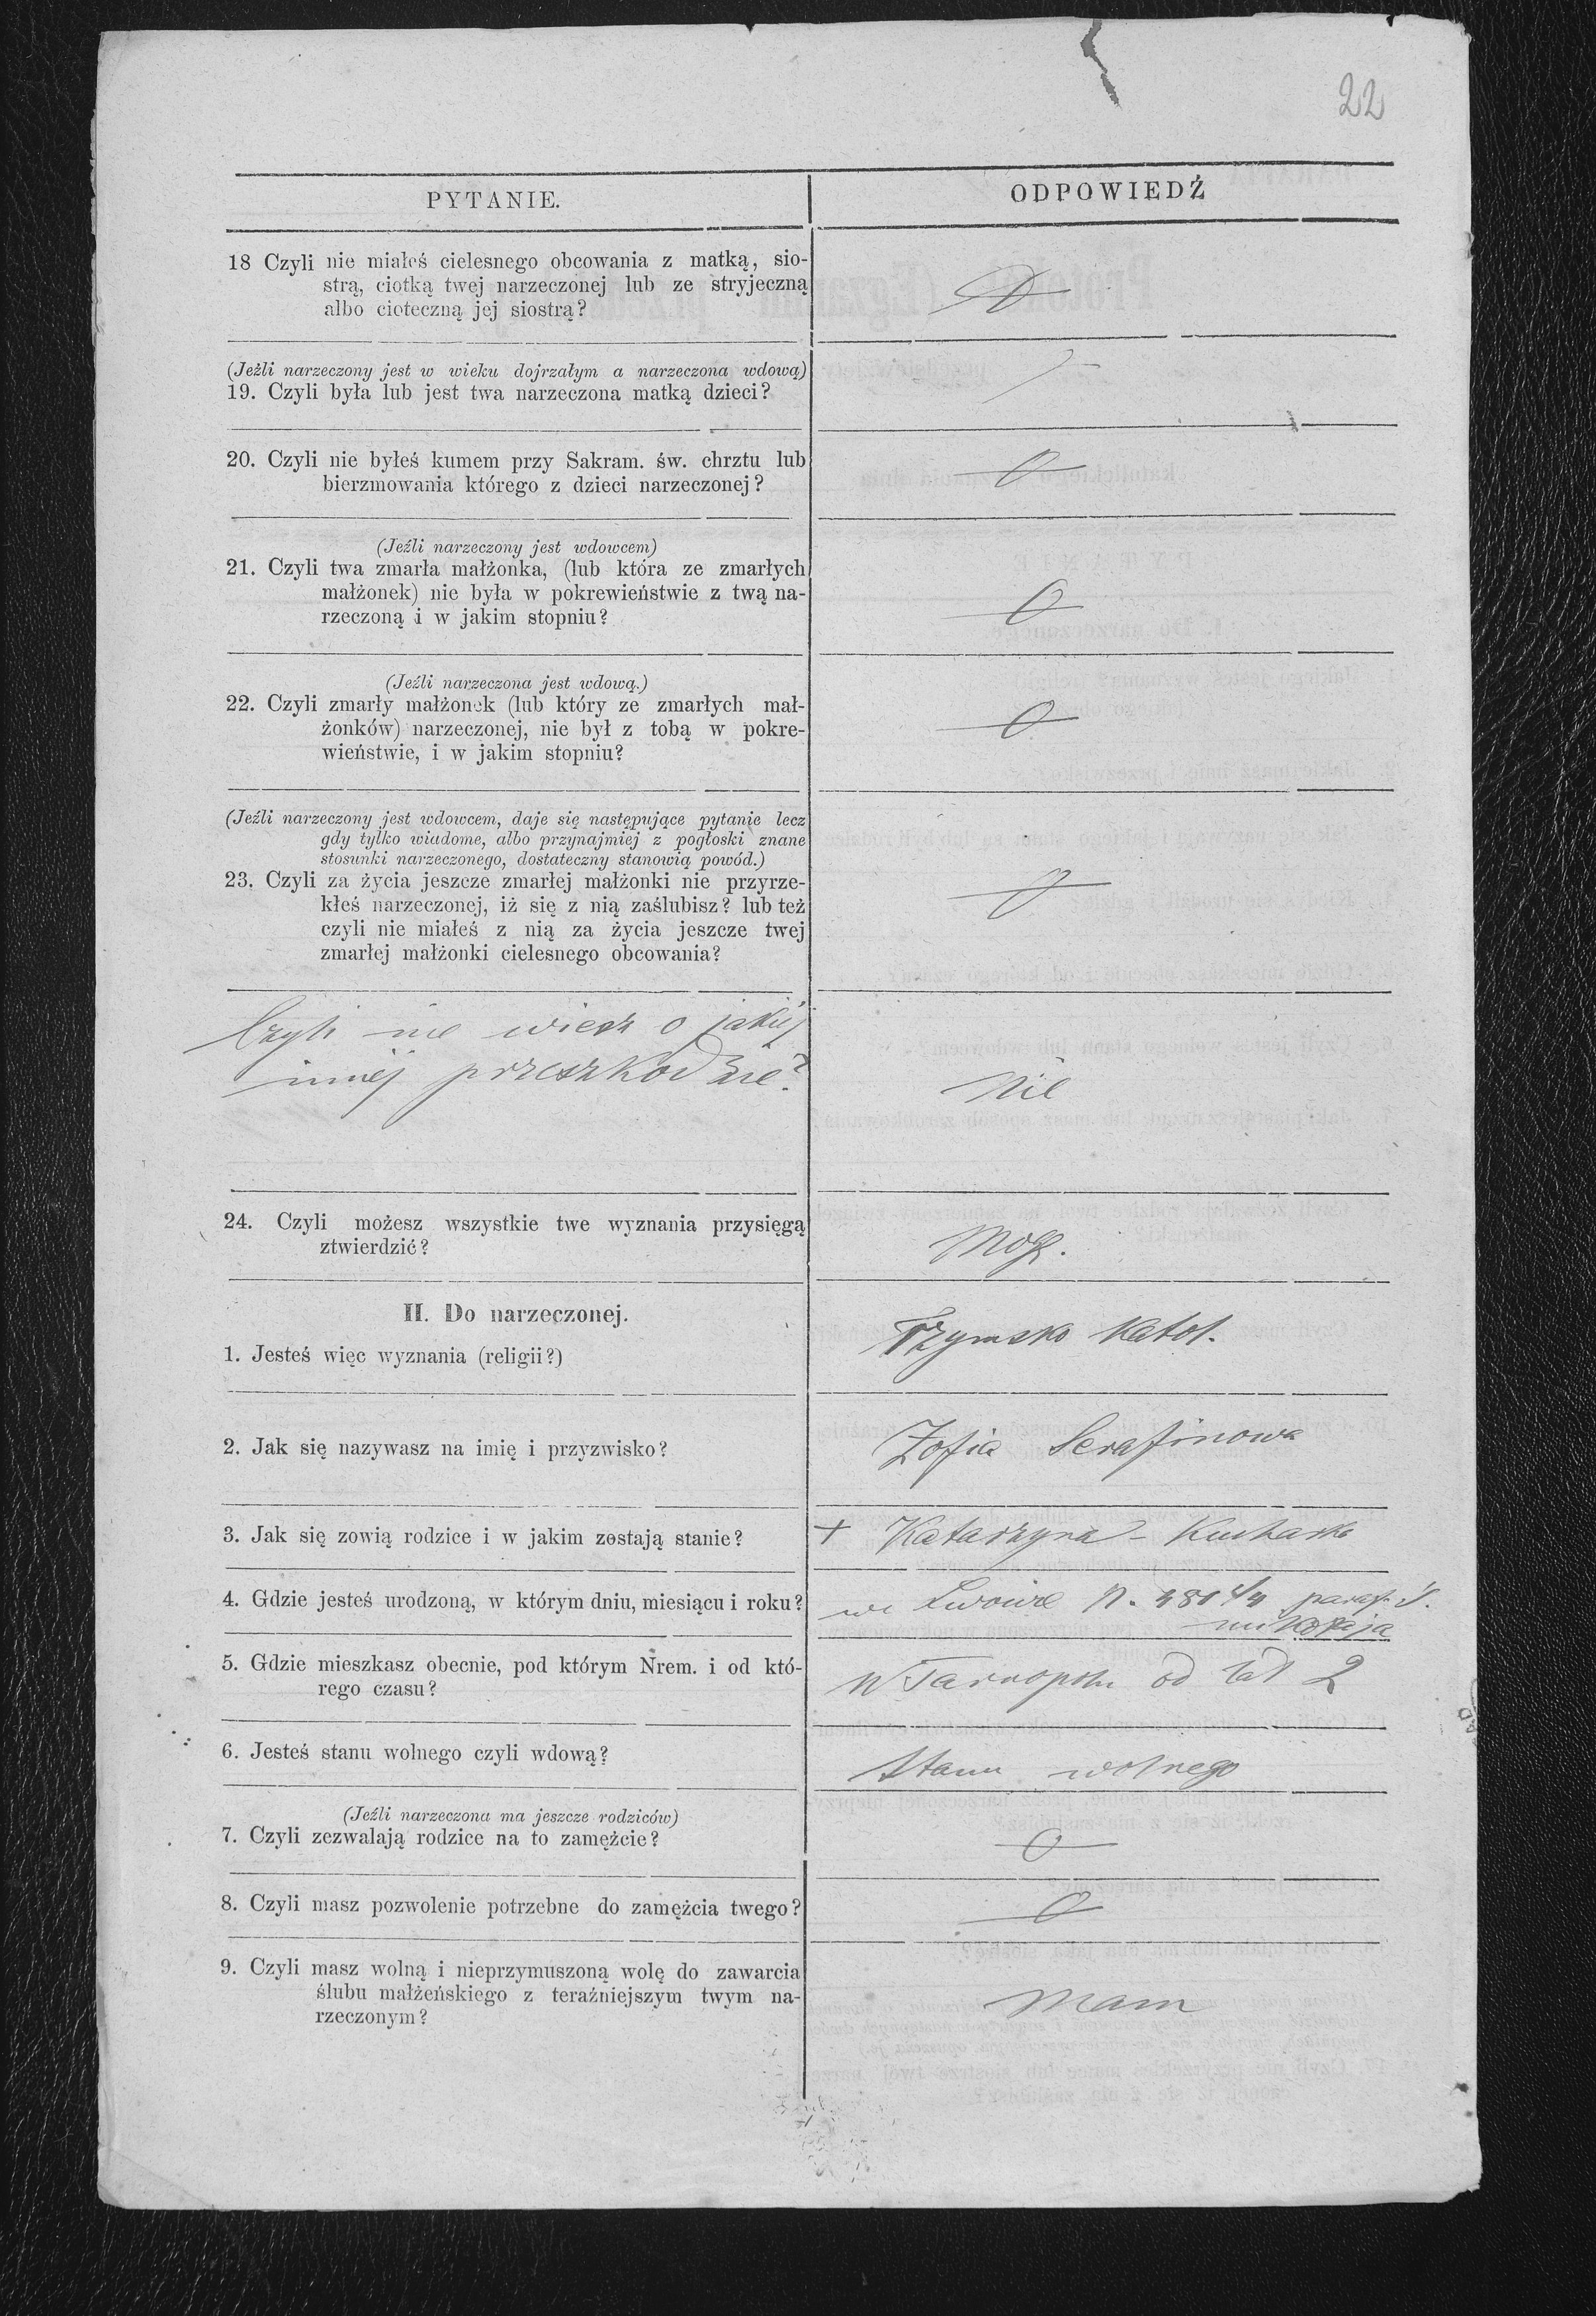 22
PYTANIE.
ODPOWIEDŹ
18 Czyli nie miałeś cielesnego obcowania z matką, sio-
strą, ciotką twej narzeczonej lub ze stryjeczną
albo cioteczną jej siostrą?
(Jeźli narzeczony jest w wieku dojrzałym a narzeczona wdową)
19. Czyli była lub jest twa narzeczona matką dzieci?
20. Czyli nie byłeś kumem przy Sakram. św. chrztu lub
bierzmowania którego z dzieci narzeczonej?
(Jeźli narzeczony jest wdowcem)
21. Czyli twa zmarła małżonka, (lub która ze zmarłych
małżonek) nie była w pokrewieństwie z twą na-
rzeczoną i w jakim stopniu?
(Jeźli narzeczona jest wdową.)
22. Czyli zmarły małżonek (lub który ze zmarłych mał-
żonków) narzeczonej, nie był z tobą w pokre-
wieństwie, i w jakim stopniu?
(Jeźli narzeczony jest wdowcem, daje się następujące pytanie lecz
gdy tylko wiadome, albo przynajmiej z pogłoski znane
stosunki narzeczonego, dostateczny stanowią powód.)
23. Czyli za życia jeszcze zmarłej małżonki nie przyrze-
kłeś narzeczonej, iż się z nią zaślubisz? lub też
czyli nie miałeś z nią za życia jeszcze twej
zmarłej małżonki cielesnego obcowania?
Czyli nie wiesz o jakiej
innej przeszkodzie?
nie
24. Czyli możesz wszystkie twe wyznania przysięgą
ztwierdzić?
Mogę.
II. Do narzeczonej.
1. Jesteś więc wyznania (religii?)
rzymsko katol.
2. Jak się nazywasz na imię i przyzwisko?
Zofia Serafinowa
3. Jak się zowią rodzice i w jakim zostają stanie?
+ Katarzyna - Kucharka
4. Gdzie jesteś urodzoną, w którym dniu, miesiącu i roku?
we Lwowie N. 4/4 paraf. ś.
mikołaja
5. Gdzie mieszkasz obecnie, pod którym Nrem. i od któ-
rego czasu?
W Tarnopolu od lat 2
6. Jesteś stanu wolnego czyli wdową?
Stanu wolnego
(Jeźli narzeczona ma jeszcze rodziców)
7. Czyli zezwalają rodzice na to zamężcie?
8. Czyli masz pozwolenie potrzebne do zamężcia twego?
9. Czyli masz wolną i nieprzymuszoną wolę do zawarcia
ślubu małżeńskiego z teraźniejszym twym na-
rzeczonym?
mam